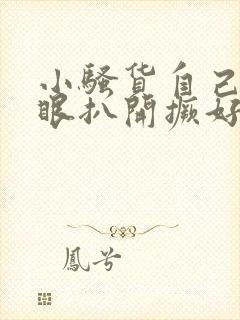 小騷货自己
眼扒開癩好
鳳兮